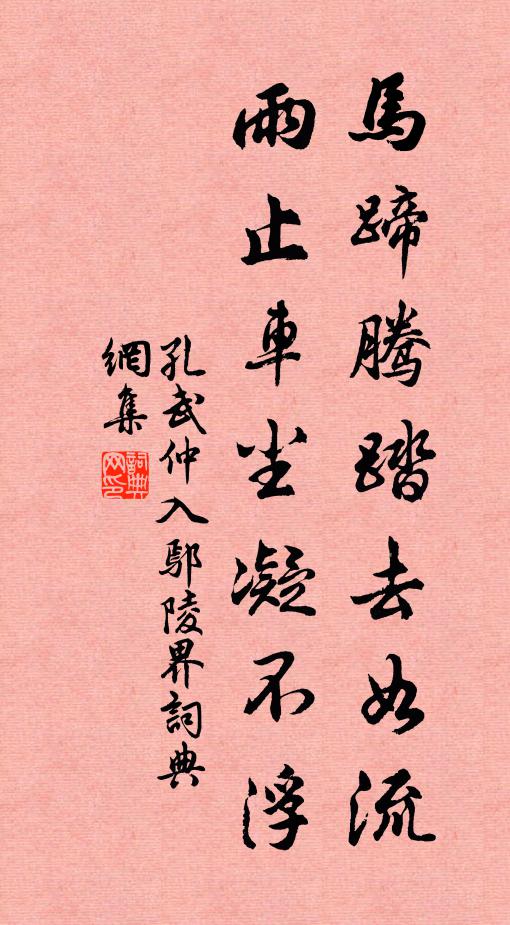 馬蹄騰踏去如流
雨止車尘凝不浮
孔武仲入鄢陵界詞典
網集
詞典网印